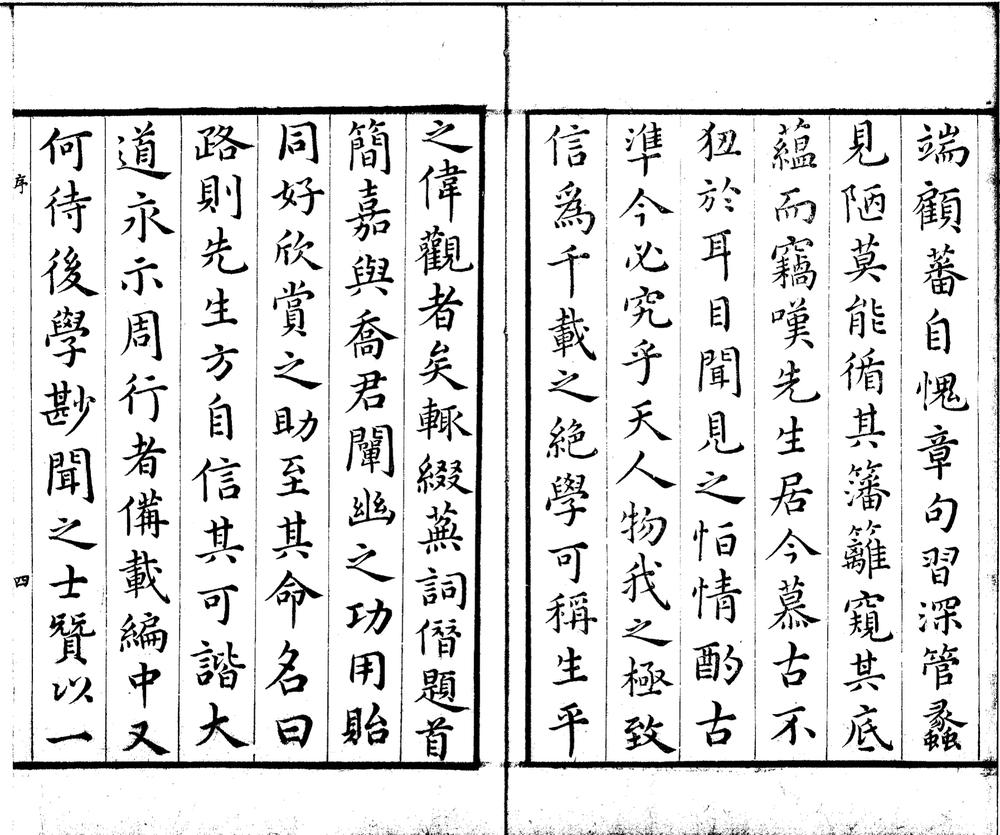 端顧蕃自愧章句習深管蠡
見陋莫能循其籓籬窺其底
蘊而竊嘆先生居今慕古不
狃於耳目聞見之怕情酌古
準今必究乎天人物我之極致
信爲千載之絶學可稱生平
之偉觀者矣輒綴蕪詞僭題首
簡嘉與喬君闡幽之功用貽
同好欣賞之助至其命名曰
路則先生方自信其可諧大
道永示周行者備載編中又
何待後學尠聞之士贊以一
序
四